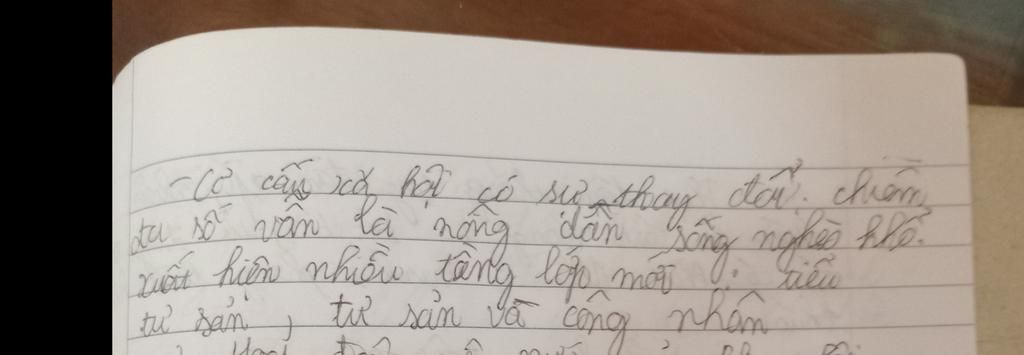 - Cơ cấu xã hội có sự thay đổi. chiếm
đa số vẫn là nông dân sống nghèo khổ.
xuất hiện nhiều tầng lớp mới: tiểu
tư sản, tư sản và công nhân